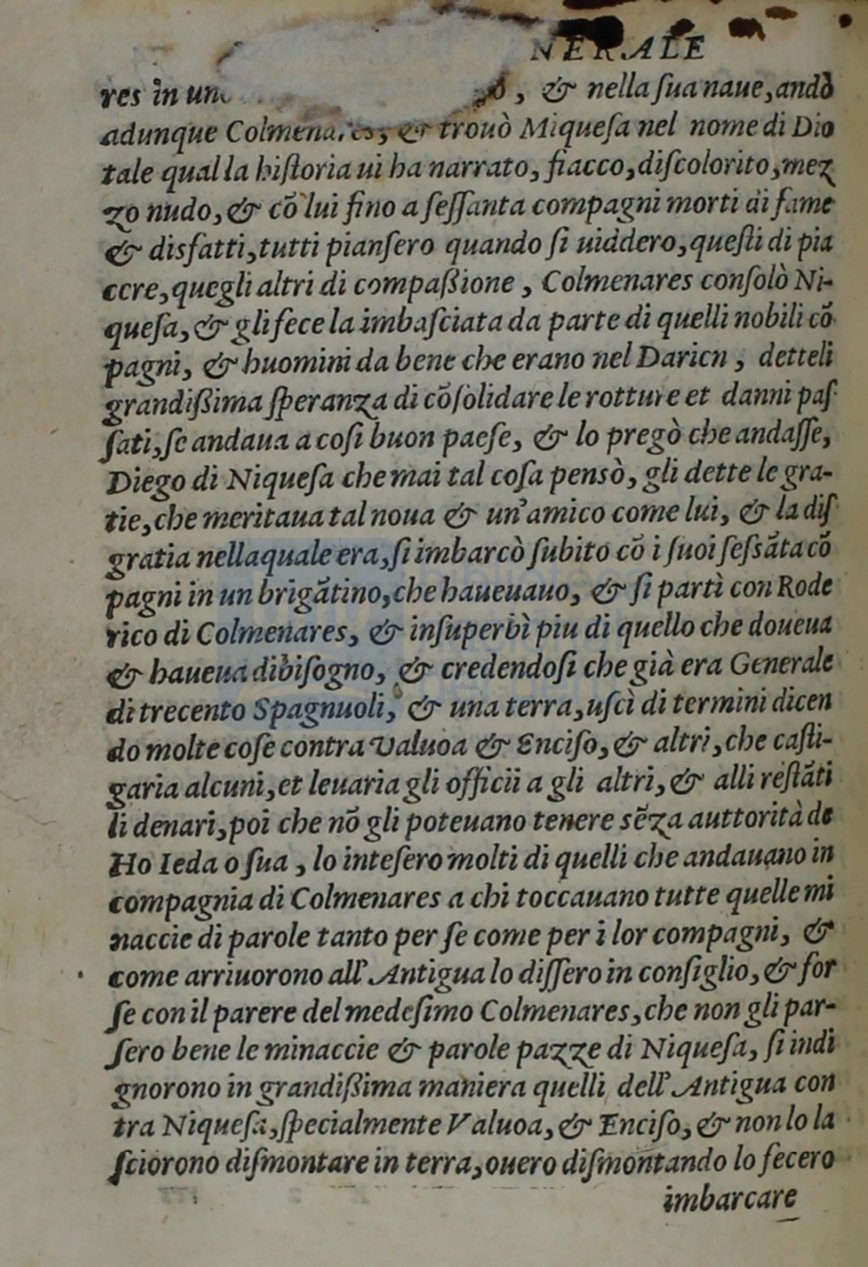 NERALE
res in un , & nella ſua naue,andò
adunque Colmenares, & trouò Miqueſa nel nome di Dio
tale qual la hiſtoria ui ha narrato, fiacco,diſcolorito,mez
zo nudo,& cõ lui fino a ſeſſanta compagni morti di fame
& disfatti,tutti pianſero quando ſi uiddero,queſti di pia
cere,quegli altri di compaßione , Colmenares conſolò Ni-
queſa,& gli fece la imbaſciata da parte di quelli nobili cõ
pagni, & huomini da bene che erano nel Darien , detteli
grandißima ſperanza di cõſolidare le rotture et danni paſ
ſati,ſe andaua a coſi buon paeſe, & lo pregò che andaſſe,
Diego di Niqueſa che mai tal coſa pensò, gli dette le gra-
tie,che meritaua tal noua & un'amico come lui, & la diſ
gratia nellaquale era,ſi imbarcò ſubito cõ i ſuoi ſeſsãta cõ
pagni in un brigãtino,che haueuauo, & ſi partì con Rode
rico di Colmenares, & inſuperbì piu di quello che doueua
& haueua dibiſogno, & credendoſi che già era Generale
di trecento Spagnuoli, & una terra,uſcì di termini dicen
do molte coſe contra Valuoa & Enciſo,& altri,che caſti-
garia alcuni,et leuaria gli officii a gli altri,& alli reſtãti
li denari,poi che nõ gli poteuano tenere sẽza auttorità de
Ho Ieda o ſua , lo inteſero molti di quelli che andauano in
compagnia di Colmenares a chi toccauano tutte quelle mi
naccie di parole tanto per ſe come per i lor compagni, &
come arriuorono all'Antigua lo diſſero in conſiglio,& for
ſe con il parere del medeſimo Colmenares,che non gli par-
ſero bene le minaccie & parole pazze di Niqueſa, ſi indi
gnorono in grandißima maniera quelli dell'Antigua con
tra Niqueſa,ſpecialmente Valuoa,& Enciſo,& non lo la
ſciorono diſmontare in terra,ouero diſmontando lo fecero
imbarcare